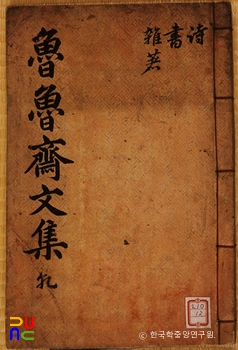 詩
書
雜著
魯魯齋文集 乹
ⓒ 한국학중앙연구원